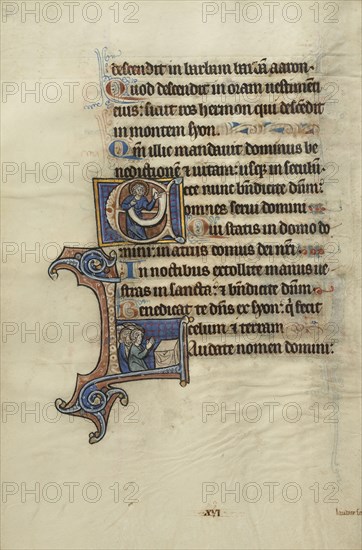 descendit in barbam barbā aaron.
Quod descendit in oram uestimenti
eius: sicut ros hermon qui descēdit
in montem syon.
Qm̄ illic mandauit dominus be
nedictionem & uitam: usq; in seculum.
Ecce nunc bn̄dicite dn̄m:
omnes serui domini
Qui statis in domo do
mini: in atriis domus dei nr̄i.
In noctibus extollite manus ues
tras in sancta: & bn̄dicite dn̄m.
Benedicat te dn̄s ex syon: q̇ fecit
celum & terram
Laudate nomen domini:
XVI
PHOTO 12